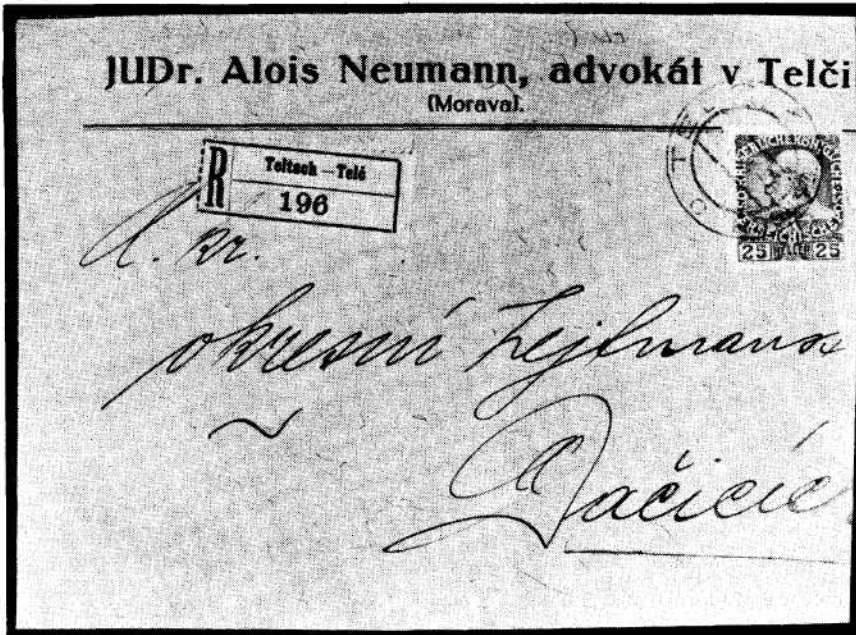 JUDr. Alois Neumann, advokát v Telči
(Morava).
R Teltsch – Telč
196
25 HELLER 25
okresní hejtmans
Dačicíc